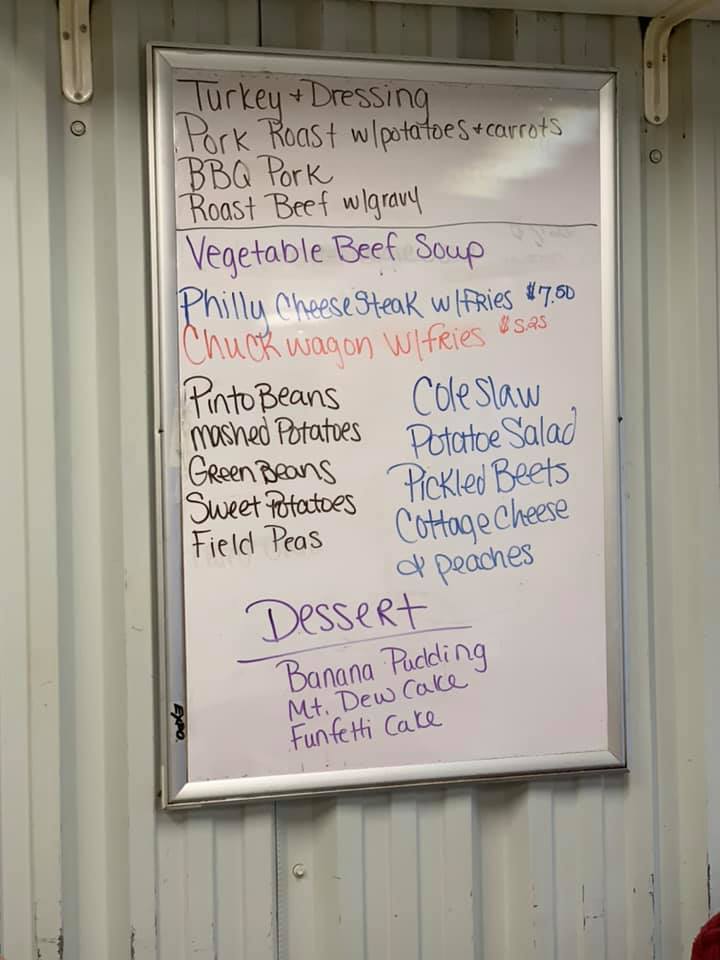 Turkey + Dressing
Pork Roast w/potatoes + carrots
BBQ Pork
Roast Beef w/gravy
Vegetable Beef Soup
Philly Cheese Steak w/Fries $7.50
Chuckwagon w/fries $5.25
Pinto Beans
mashed Potatoes
Green Beans
Sweet Potatoes
Field Peas
Cole Slaw
Potatoe Salad
Pickled Beets
Cottage Cheese
& peaches
Dessert
Banana Pudding
Mt. Dew Cake
Funfetti Cake
EXPO